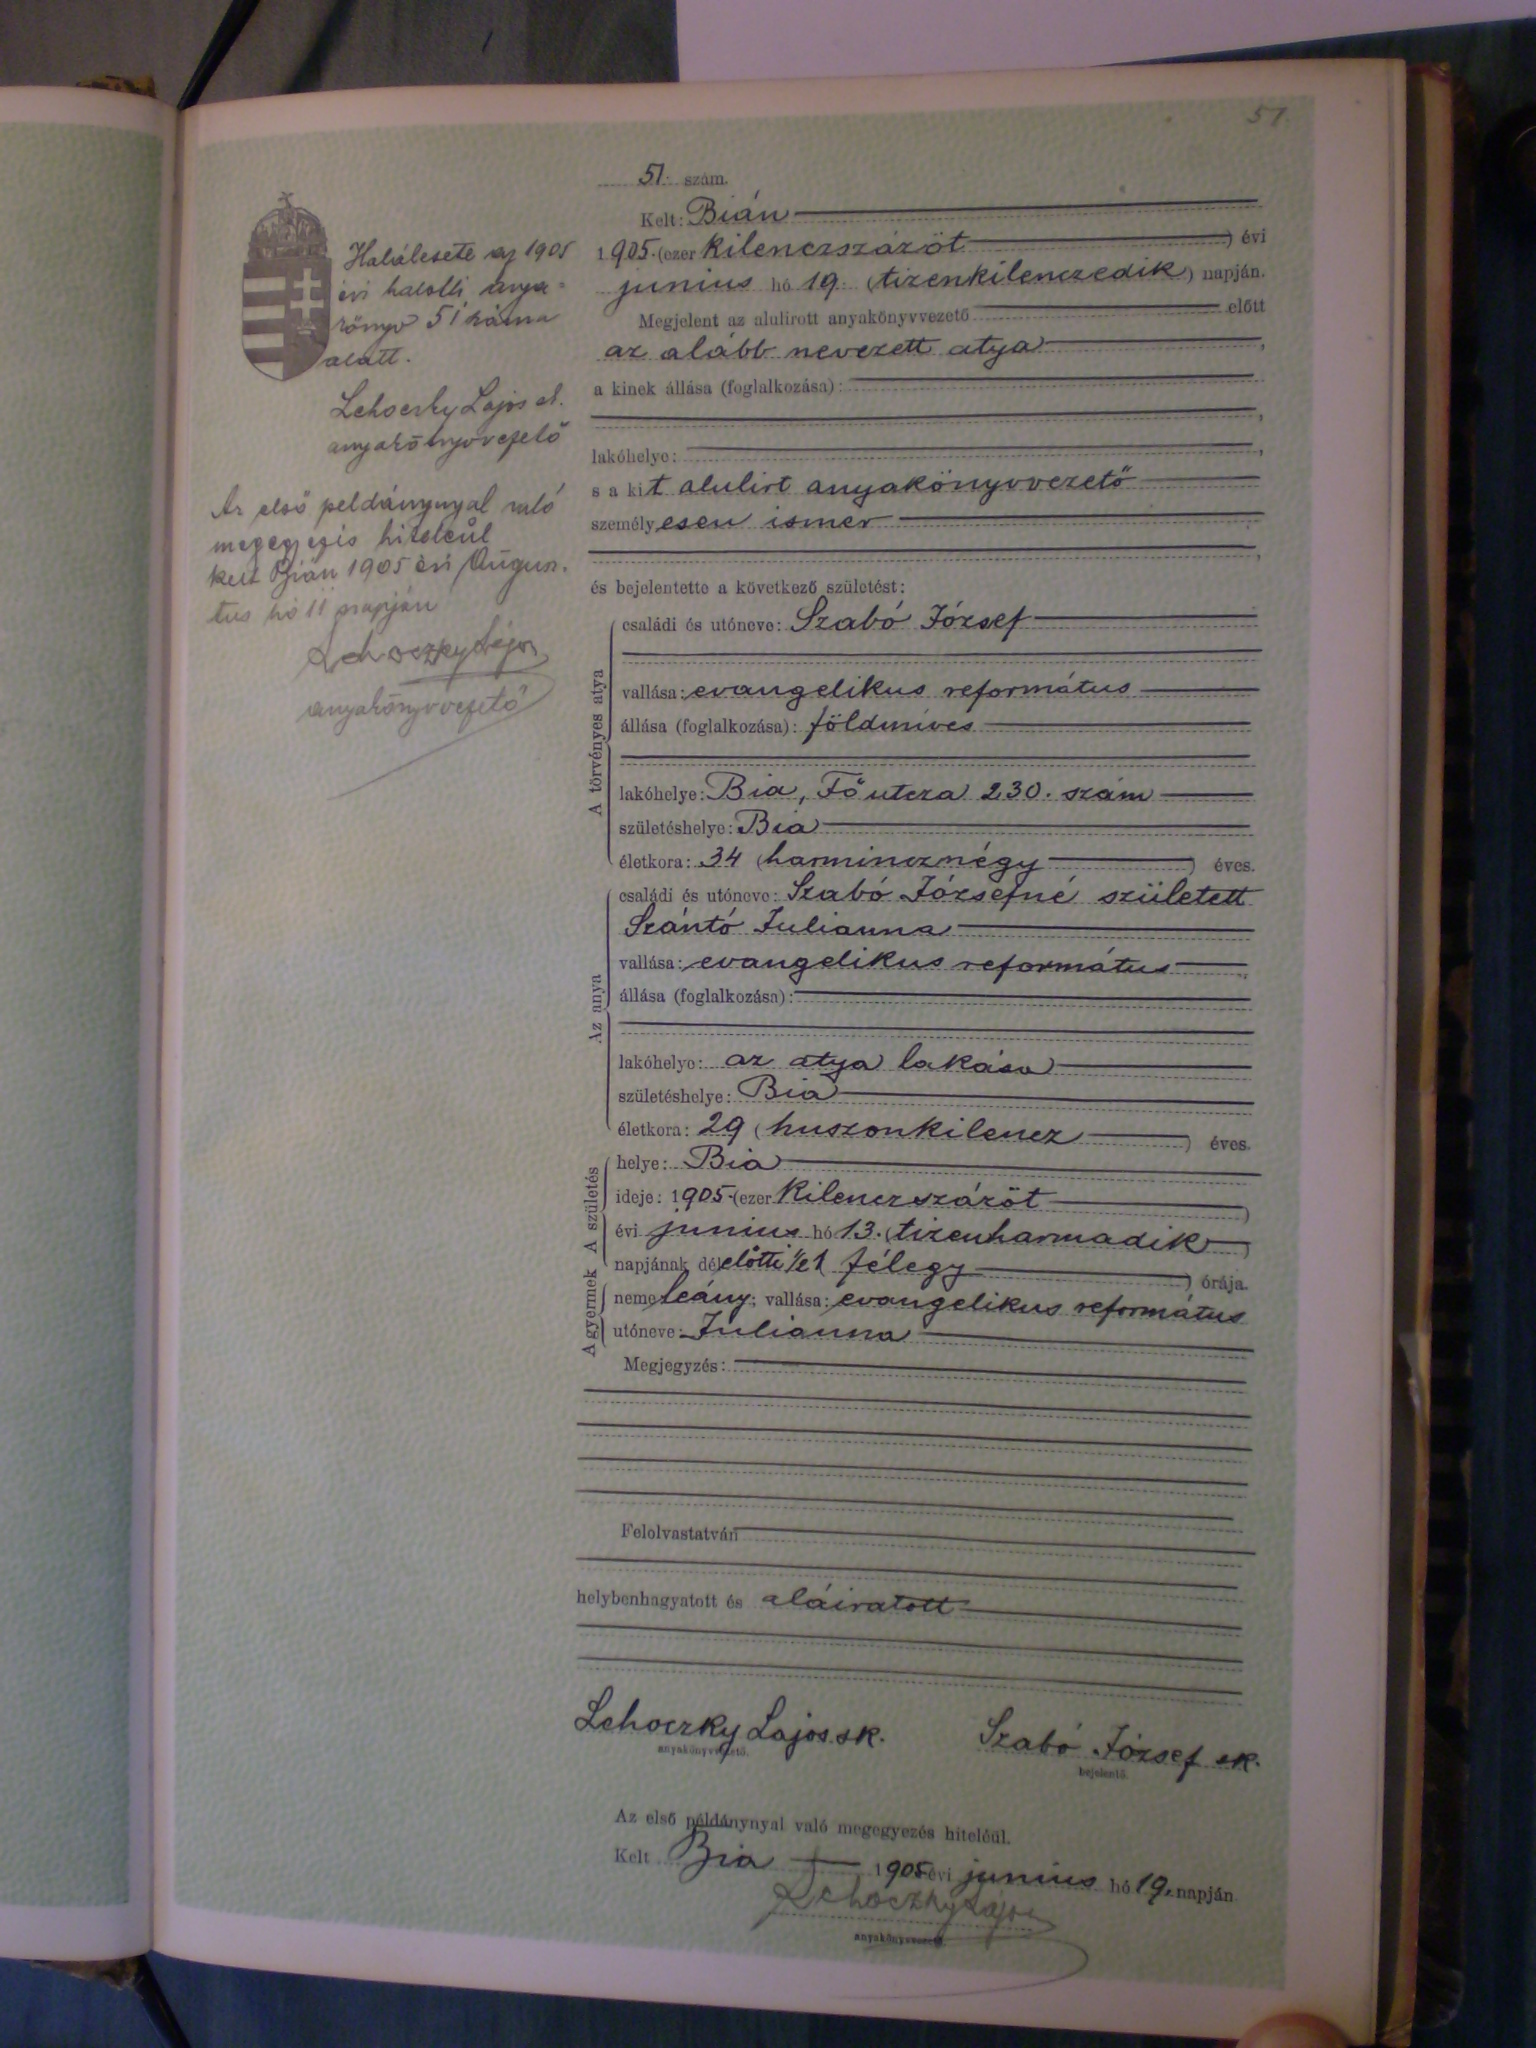 51
51. szám.
Kelt: Bián
1905. (ezer kilenczszázöt) évi
junius hó 19. (tizenkilenczedik) napján.
Megjelent az alulirott anyakönyvvezető előtt
az alább nevezett atya,
a kinek állása (foglalkozása):
lakóhelye:
s a kit alulirt anyakönyvvezető
személyesen ismer
és bejelentette a következő születést:
A törvényes atya
családi és utóneve: Szabó József
vallása: evangelikus református
állása (foglalkozása): földmíves
lakóhelye: Bia, Fő utcza 230. szám
születéshelye: Bia
életkora: 34 (harmincznégy) éves.
Az anya
családi és utóneve: Szabó Józsefné született
Szántó Julianna
vallása: evangelikus református
állása (foglalkozása):
lakóhelye: az atya lakása
születéshelye: Bia
életkora: 29 (huszonkilencz) éves.
A születés
helye: Bia
ideje: 1905. (ezer kilenczszázöt)
évi junius hó 13. (tizenharmadik)
napjának délelőtti ½1 félegy) órája.
A gyermek
neme leány; vallása: evangelikus református
utóneve: Julianna
Megjegyzés:
Felolvastatván
helybenhagyatott és aláiratott
Lehoczky Lajos sk.
anyakönyvvezető.
Szabó József sk.
bejelentő.
Az első példánynyal való megegyezés hiteléül.
Kelt Bia 1905 évi junius hó 19. napján
Lehoczky Lajos
anyakönyvvezető.
Halálesete az 1905
évi halotti anya-
könyv 51 száma
alatt.
Lehoczky Lajos
anyakönyvvezető
Az első példánynyal való
megegyezés hiteléül
kelt Bián 1905 évi Augus.
tus hó 11 napján
Lehoczky Lajos
anyakönyvvezető